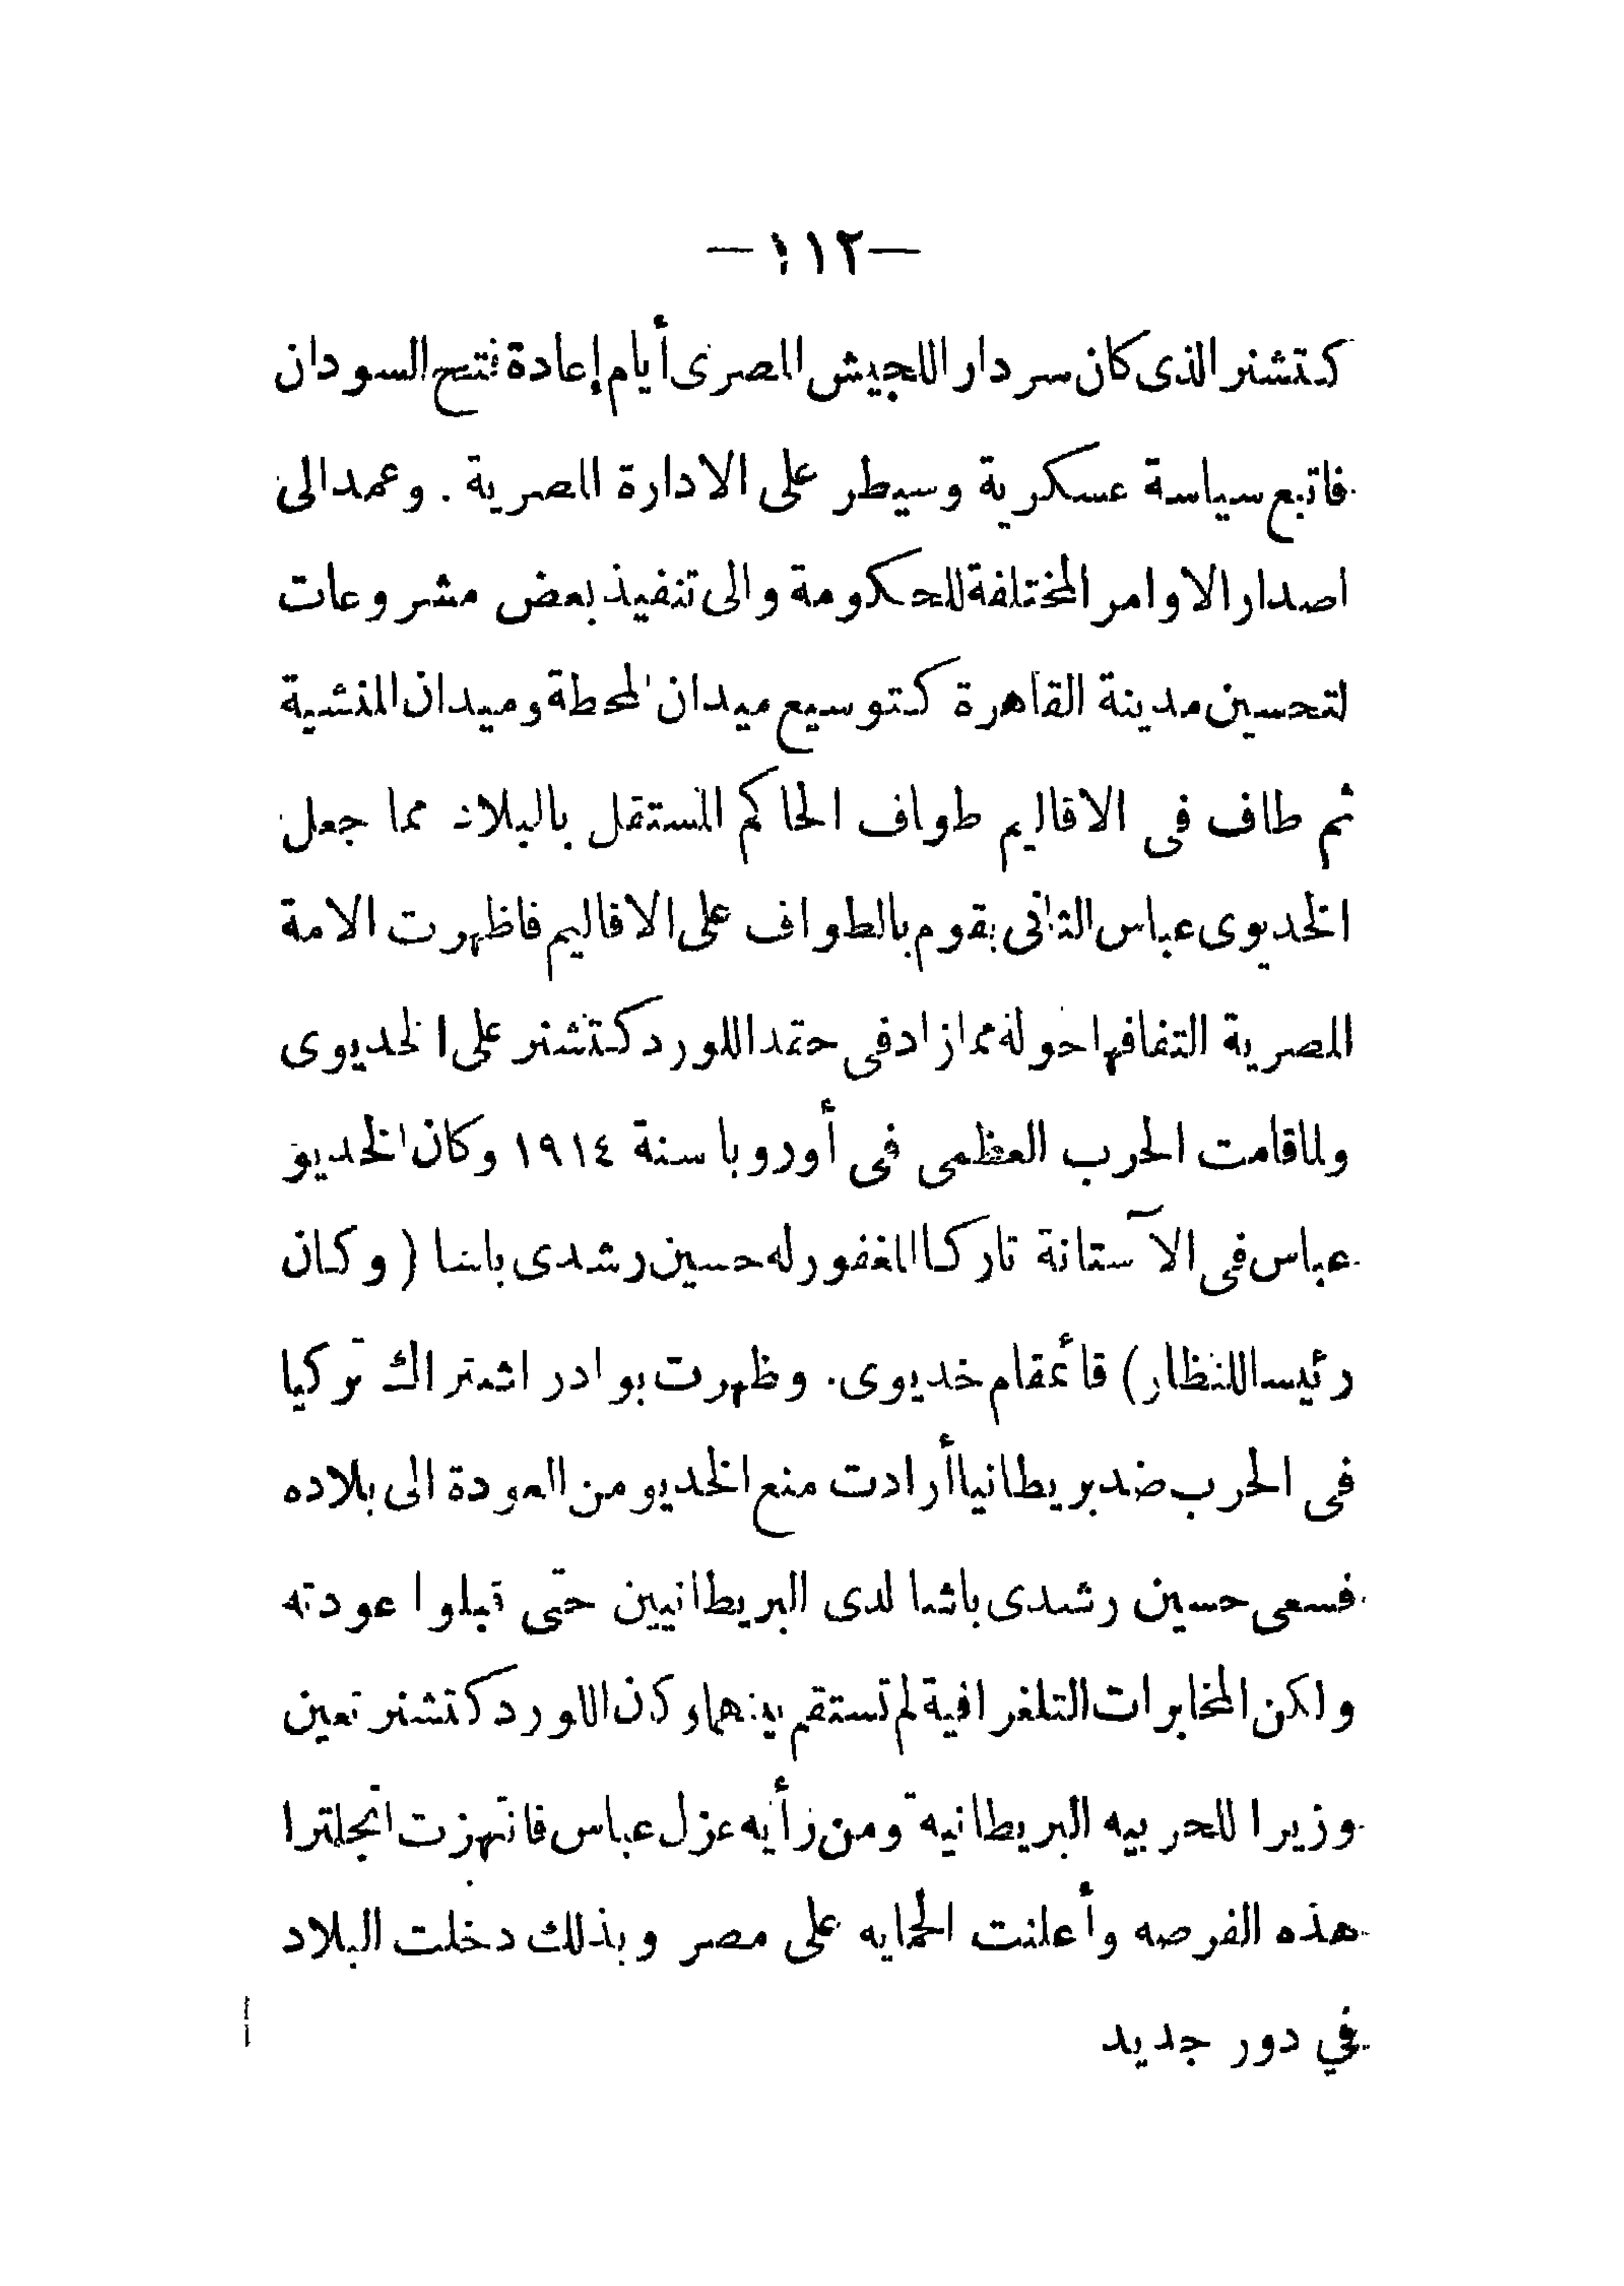 — ١١٢ —
كتشنر الذى كان سردارا للجيش المصرى أيام إعادة فتح السودان
فاتبع سياسة عسكرية وسيطر على الادارة المصرية . وعمد الى
اصدار الاوامر المختلفة للحكومة والى تنفيذ بعض مشروعات
لتحسين مدينة القاهرة كتوسيع ميدان المحطة وميدان المنشية
ثم طاف فى الاقاليم طواف الحاكم المستقل بالبلاد مما جعل
الخديوى عباس الثانى يقوم بالطواف على الاقاليم فاظهرت الامة
المصرية التفافها حوله مما زاد فى حقد اللورد كتشنر على الخديوى
ولما قامت الحرب العظمى فى أوروبا سنة ١٩١٤ وكان الخديو
عباس فى الآستانة تاركا المغفور له حسين رشدى باشا ( وكان
رئيسا للنظار ) قائمقام خديوى . وظهرت بوادر اشتراك تركيا
فى الحرب ضد بريطانيا أرادت منع الخديو من العودة الى بلاده
فسعى حسين رشدى باشا لدى البريطانيين حتى قبلوا عودته
ولكن المخابرات التلغرافية لم تستقم بينهما وكان اللورد كتشنر تعين
وزيرا للحربيه البريطانية ومن رأيه عزل عباس فانتهزت انجلترا
هذه الفرصه وأعلنت الحمايه على مصر وبذلك دخلت البلاد
في دور جديد